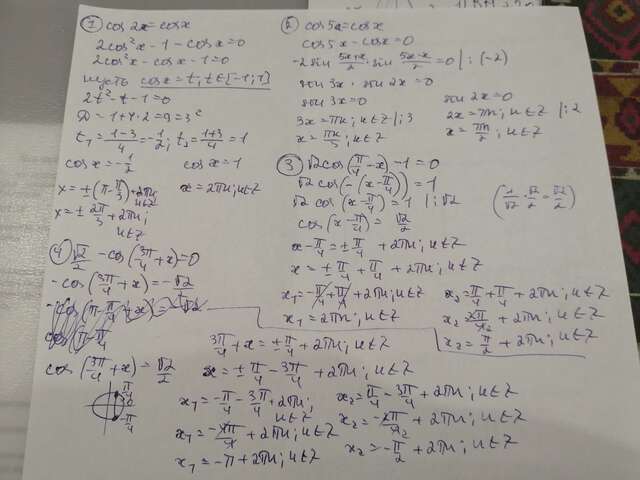 ① cos2x=cosx
2cos²x-1-cosx=0
2cos²x-cosx-1=0
пусть cosx=t, t∈[-1;1]
2t²-t-1=0
D=1+4·2=9=3²
t₁=(1-3)/4=-1/2; t₂=(1+3)/4=1
cosx=-1/2 cosx=1
x=±(π-π/3)+2πn; n∈Z x=2πn; n∈Z
x=±2π/3+2πn;
n∈Z
② cos5x=cosx
cos5x-cosx=0
-2sin (5x+x)/2 · sin (5x-x)/2=0 |:(-2)
sin3x·sin2x=0
sin3x=0 sin2x=0
3x=πn; n∈Z |:3 2x=πn; n∈Z |:2
x=πn/3; n∈Z x=πn/2; n∈Z
③ √2cos(π/4-x)-1=0
√2cos(-(x-π/4))=1
√2cos(x-π/4)=1 |:√2 (1/√2·√2/2=√2/2)
cos(x-π/4)=√2/2
x-π/4=±π/4+2πn; n∈Z
x=±π/4+π/4+2πn; n∈Z
x₁=-π/4+π/4+2πn; n∈Z x₂=π/4+π/4+2πn; n∈Z
x₁=2πn; n∈Z x₂=2π/4₂+2πn; n∈Z
x₂=π/2+2πn; n∈Z
④ √2/2-cos(3π/4+x)=0
-cos(3π/4+x)=-√2/2
cos(3π/4+x)=√2/2
π/4
0
-π/4
3π/4+x=±π/4+2πn; n∈Z
x=±π/4-3π/4+2πn; n∈Z
x₁=-π/4-3π/4+2πn; n∈Z x₂=π/4-3π/4+2πn; n∈Z
x₁=-4π/4+2πn; n∈Z x₂=-2π/4₂+2πn; n∈Z
x₁=-π+2πn; n∈Z x₂=-π/2+2πn; n∈Z